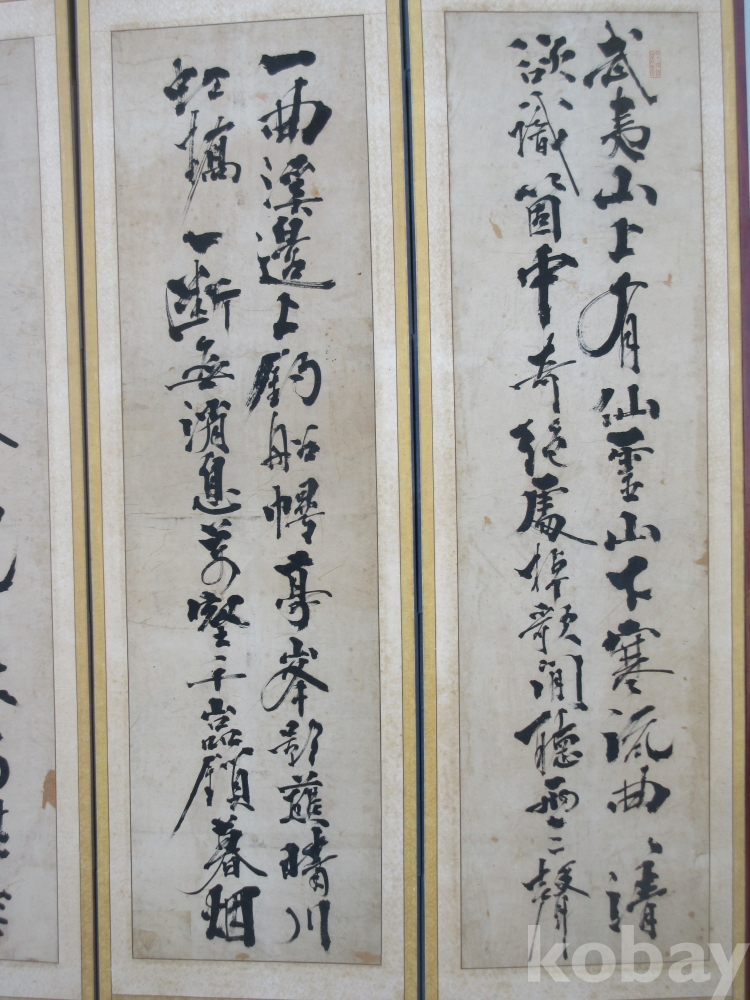 武夷山上有仙靈山下寒流曲〻清
欲識箇中奇絶處棹歌閒聽兩三聲
一曲溪邊上釣船幔亭峯影蘸晴川
虹橋一斷無消息萬壑千嵒鎖暮烟
kobay